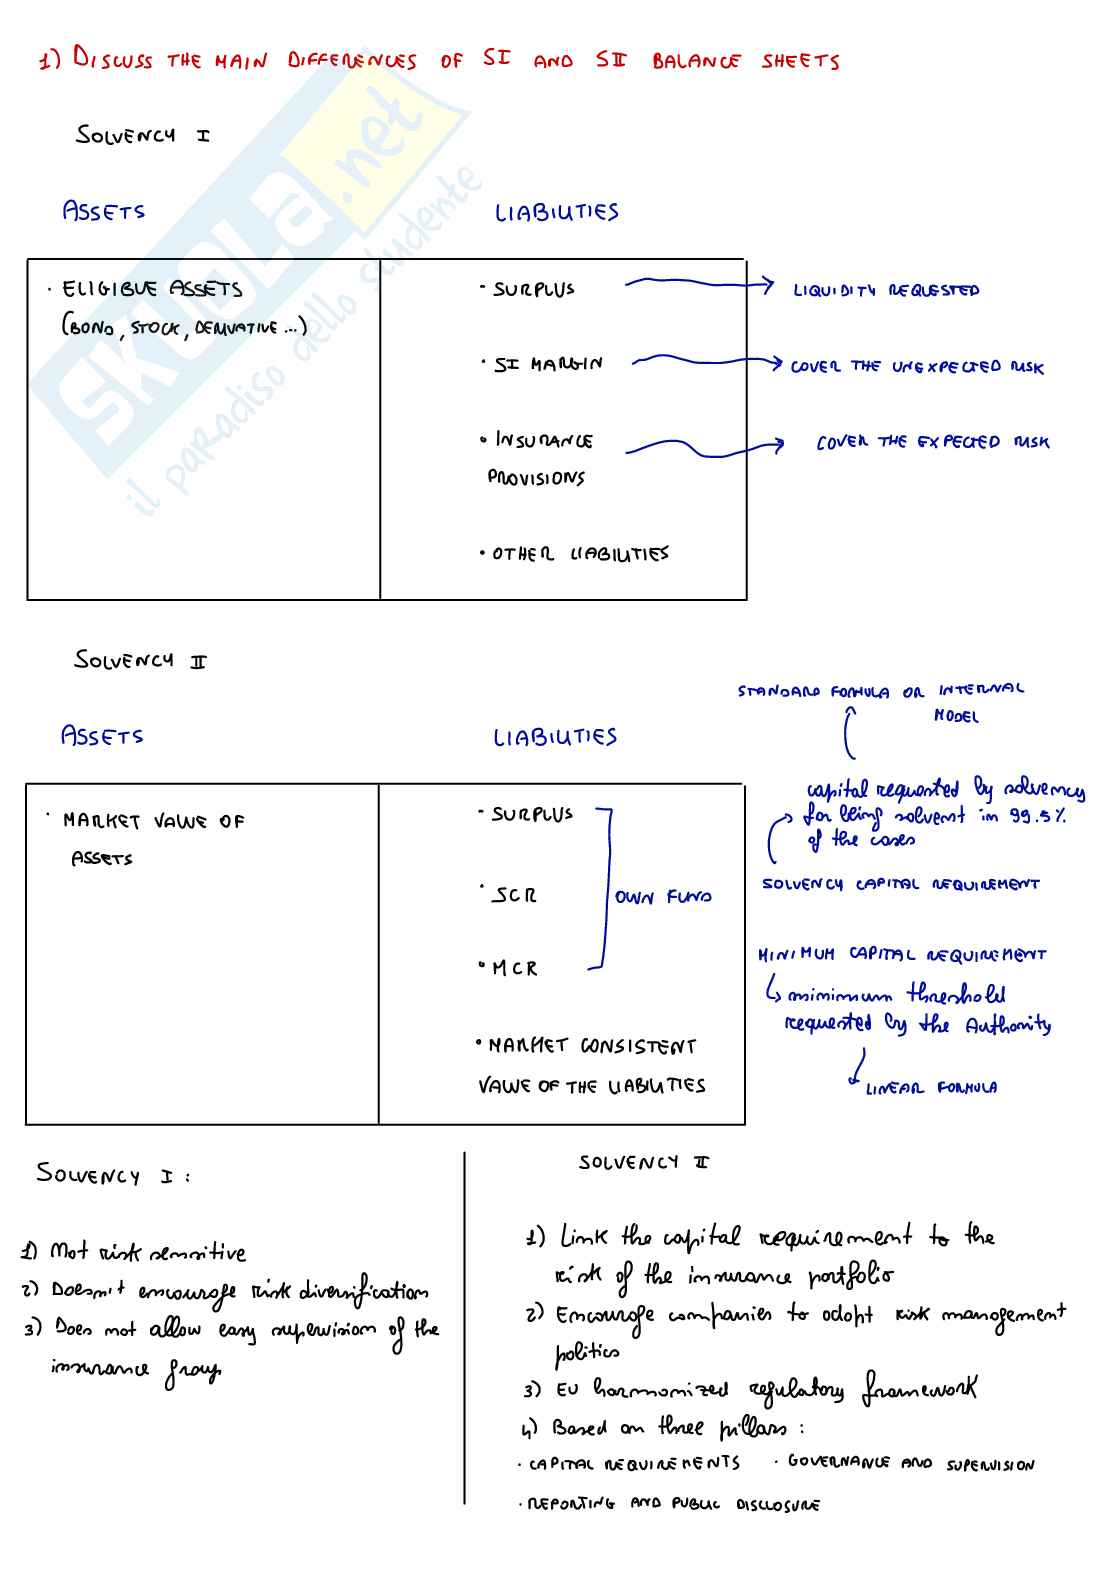 1) DISCUSS THE MAIN DIFFERENCES OF SI AND SII BALANCE SHEETS
SOLVENCY I
ASSETS
LIABILITIES
· ELIGIBLE ASSETS
(BOND, STOCK, DERIVATIVE ...)
· SURPLUS
LIQUIDITY REQUESTED
· SI MARGIN
COVER THE UNEXPECTED RISK
· INSURANCE
PROVISIONS
COVER THE EXPECTED RISK
· OTHER LIABILITIES
SKUOLA.net
il paradiso dello studente
SOLVENCY II
ASSETS
LIABILITIES
STANDARD FORMULA OR INTERNAL
MODEL
· MARKET VALUE OF
ASSETS
· SURPLUS
· SCR
· MCR
OWN FUND
· MARKET CONSISTENT
VALUE OF THE LIABILITIES
capital requested by solvency
for being solvent in 99.5%
of the cases
SOLVENCY CAPITAL REQUIREMENT
MINIMUM CAPITAL REQUIREMENT
minimum threshold
requested by the Authority
LINEAR FORMULA
SOLVENCY I :
1) Not risk sensitive
2) Doesn't encourage risk diversification
3) Does not allow easy supervision of the
insurance group
SOLVENCY II
1) Link the capital requirement to the
risk of the insurance portfolio
2) Encourage companies to adopt risk management
politics
3) EU harmonized regulatory framework
4) Based on three pillars :
· CAPITAL REQUIREMENTS · GOVERNANCE AND SUPERVISION
· REPORTING AND PUBLIC DISCLOSURE